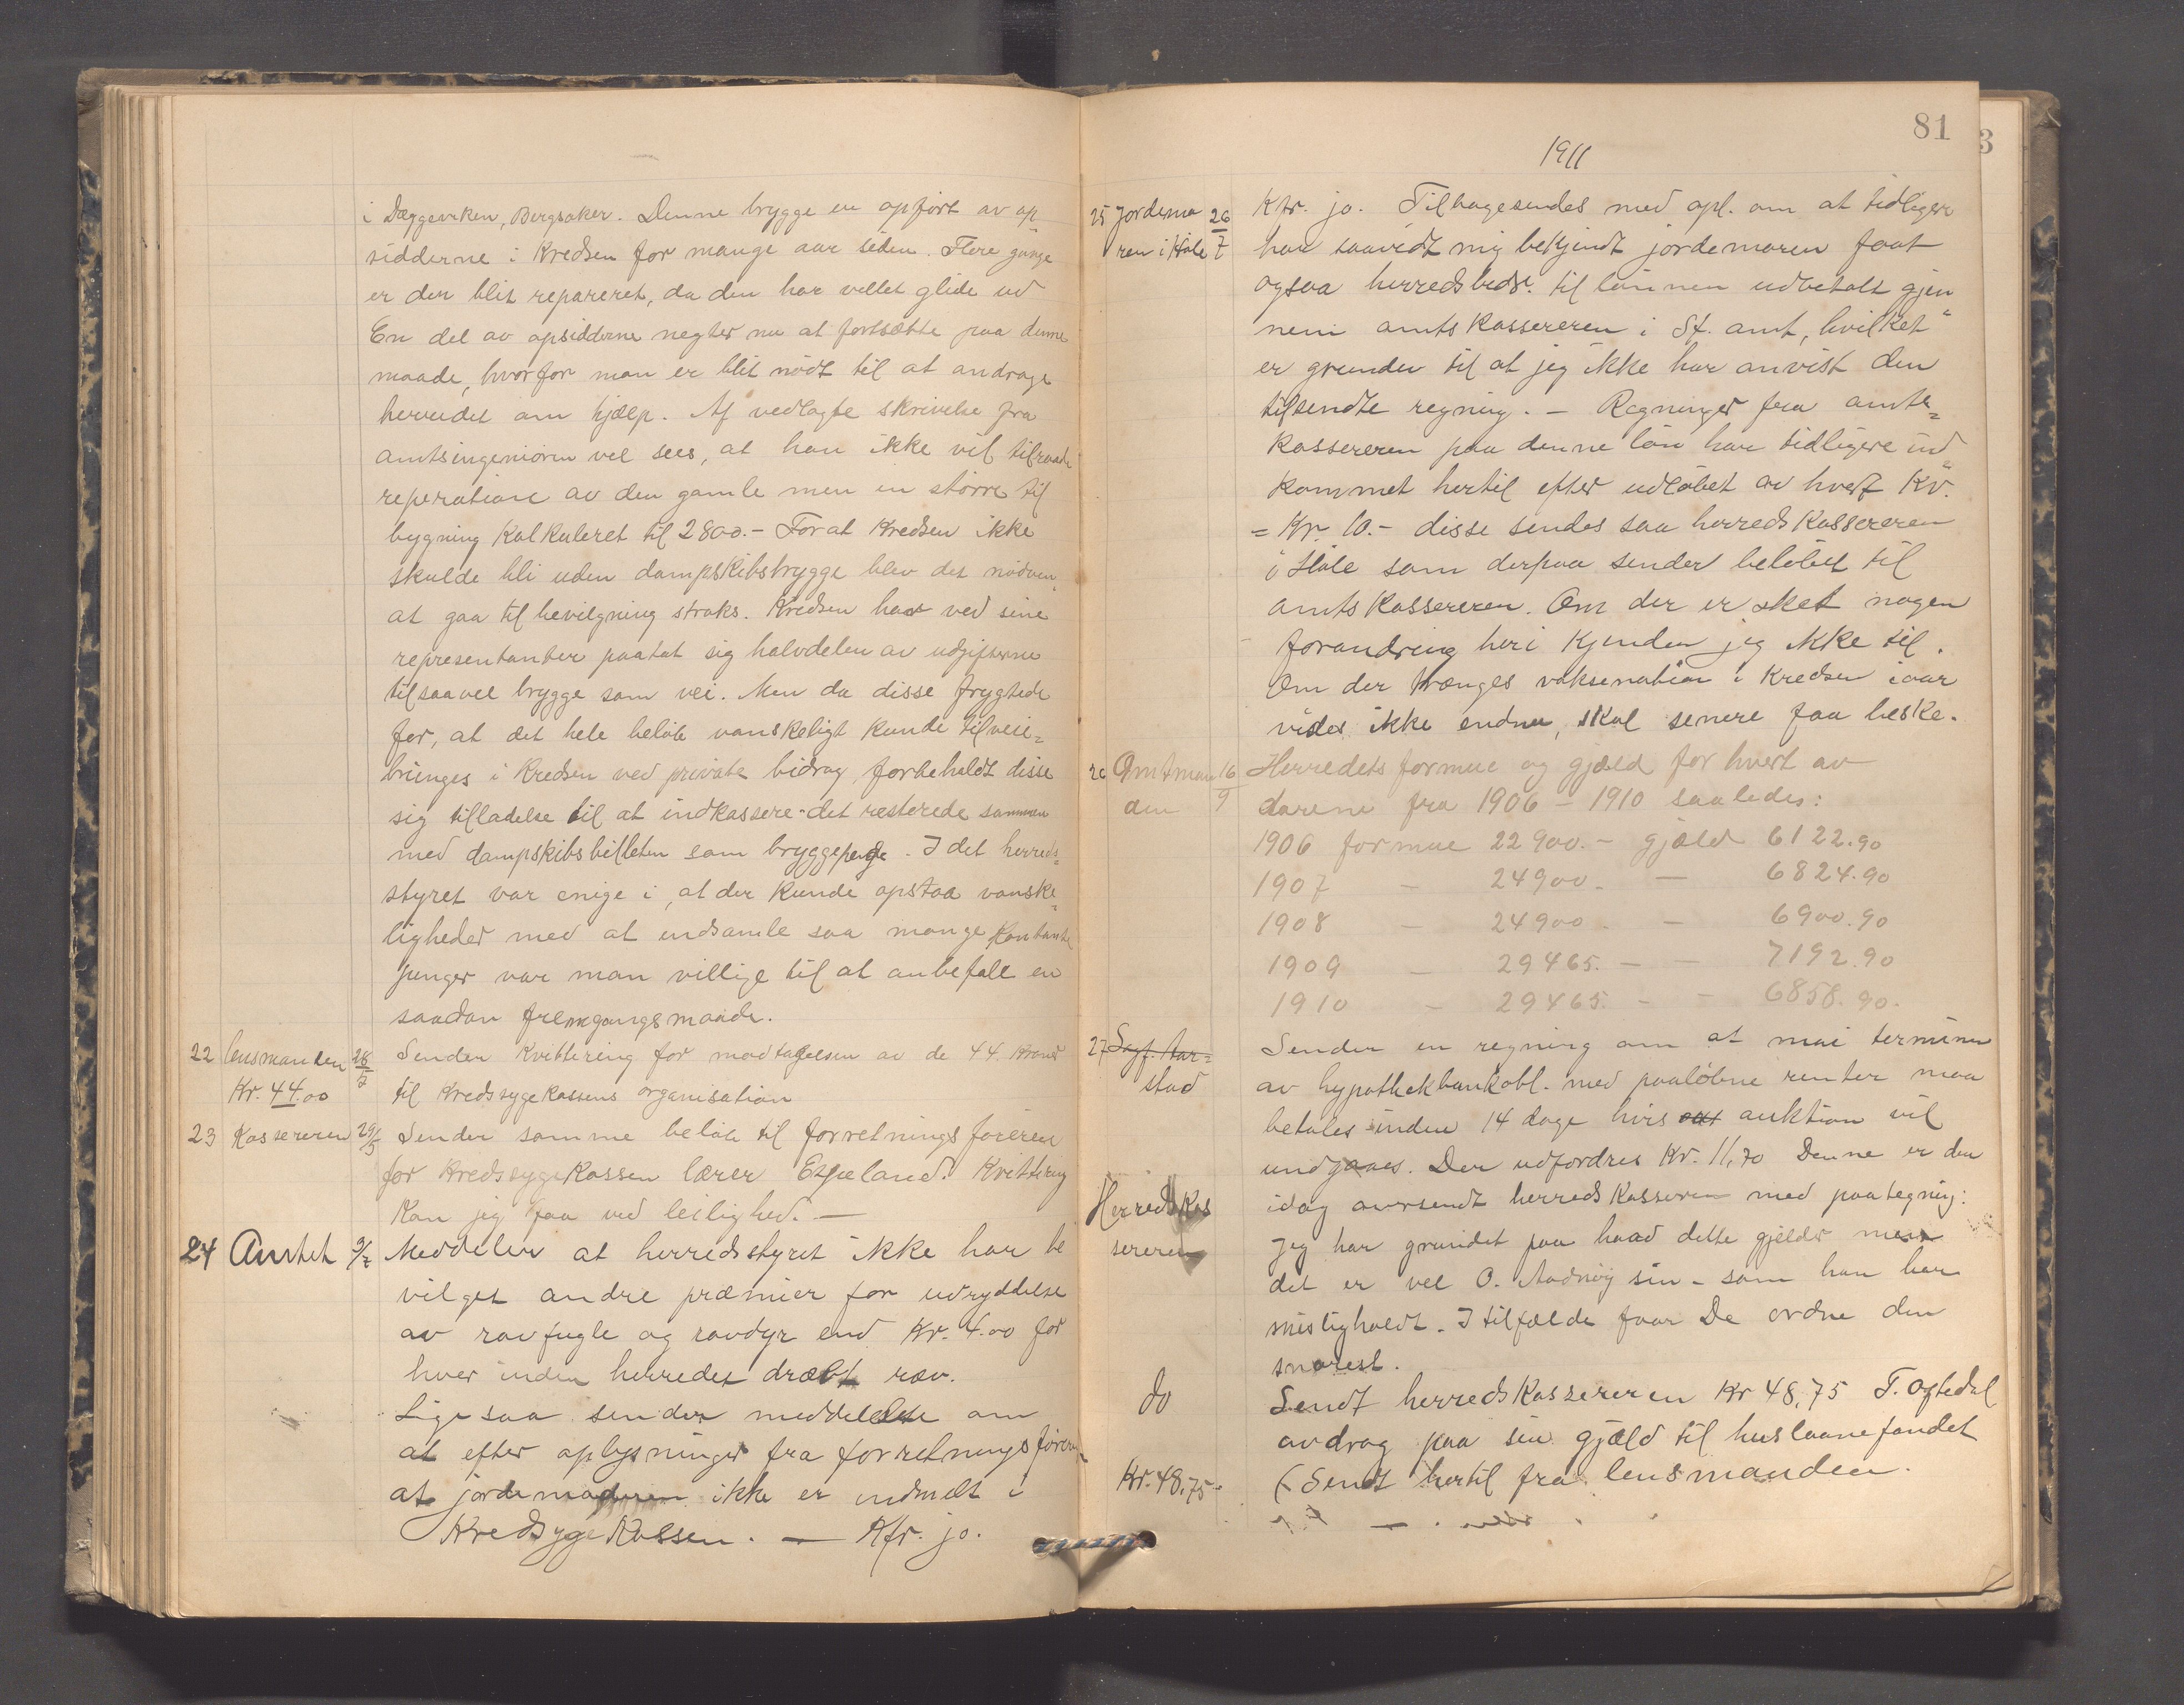 i Dæggeviken, Bergsaker. Denne brygge er opført av op
sidderne i Kredsen for mange aar siden. Flere gange
er den blit repareret, da den har villet glide ud
En del av opsidderne negter nu at fortsætte paa denne
maade, hvorfor man er blit nødt til at andrage
herredet om hjælp. Af vedlagte skrivelse fra
amtsingeniøren vel sees, at han ikke vil tilraade
reperation av den gamle men en større til
bygning Kalkuleret til 2800.- For at Kredsen ikke
skulde bli uden dampskibsbrygge blev det nødven
at gaa til bevilgning straks. Kredsen har ved sine
representanter paatat sig halvdelen av udgifterne
til saavel brygge som vei. Men da disse frygtede
for, at det hele beløb vanskeligt kunde tilveie=
bringes i Kredsen ved private bidrag, forbeholdt disse
sig tilladelse til at indkassere det resterede sammen
med dampskibsbilleten som bryggepenge. I det herreds=
styret var enige i, at der kunde opstaa vanske=
ligheder med at indsamle saa mange Kontante
penger var man villige til at anbefale en
saadan fremgangsmaade.
22 lensmanden 28/5 Sender Kvittering for modtagelsen av de 44 Kroner
Kr. 44.00 til Kredssygekassens organisation
23 Kassereren 29/5 Sender samme beløb til forretningsføreren
for Kredssygekassen lærer Espeland. Kvittering
Kan jeg faa ved leilighed. —
24 Amtet 3/7 Meddeler at herredsstyret ikke har be
vilget andre præmier for udryddelse
av rovfugle og rovdyr end Kr. 4.00 for
hver inden herredet dræbt ræv.
Ligesaa sender meddelelse om
at efter oplysninger fra forretningsføreren
at jordemoderen ikke er indmelt i
Kredsygekassen. — Kfr. jo.
81
1911
25 Jordemo 26/7 Kfr. jo. Tilbagesendes med opl. om at tidligere
ren i Høle har saavidt mig bekjendt jordemoren faat
ogsaa herredsbidr. til lønnen udbetalt gjen
nem amtskassereren i St. amt, hvilket
er grunden til at jeg ikke har anvist den
tilsendte regning. – Regninger fra amts=
kassereren paa denne løn har tidligere ind
kommet hertil efter udløbet av hvert Kv.
= Kr. 10.- disse sendes saa herredskassereren
i Høle som derpaa sender beløbet til
amtskassereren. Om der er sket nogen
forandring heri Kjender jeg ikke til.
Om der trænges vaksenation i Kredsen iaar
vides ikke endnu, skal senere faa beske.
26 Amtman 16/9 Herredets formue og gjæld for hvert av
den aarene fra 1906 – 1910 saaledes:
1906 formue 22900.- gjæld 6122.90
1907 – 24900. — 6824.90
1908 – 24900. – 6900.90
1909 – 29465. – – 7192.90
1910 – 29465. – – 6858.90.
27 Sagf. Aar= Sender en regning om at mai terminen
stad av hypothekbankobl. med paaløbne renter maa
betales inden 14 dage hvis auktion vil
undgaaes. Der udfordres Kr. 11,70 Denne er den
Herredskas idag oversendt herredskasseren med paategning:
sereren Jeg har grundet paa hvad dette gjelder men
det er vel O. Aadnøy sin – som han har
misligholdt. I tilfælde faar De ordne den
snarest.
do Sendt herredskassereren Kr 48,75 T. Oftedal
avdrag paa sin gjæld til huslaanefondet
Kr. 48,75 (Sendt hertil fra lensmanden.